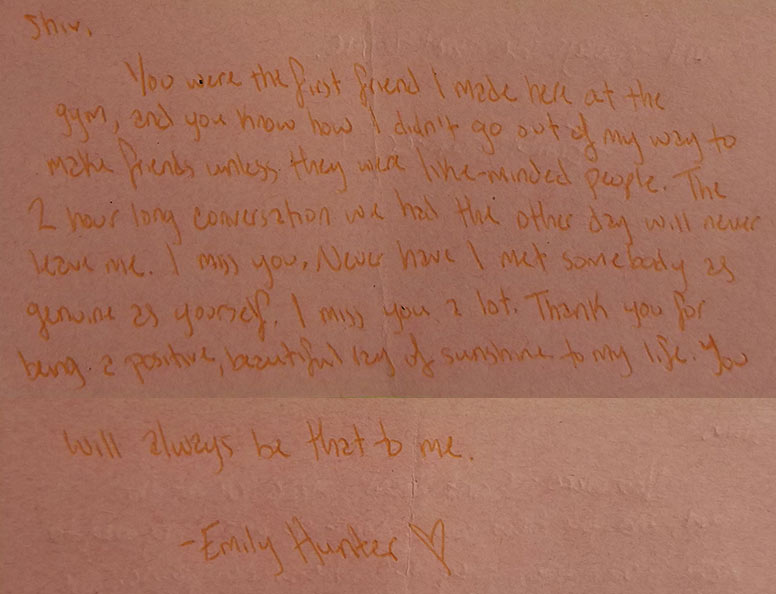 Shiv,
You were the first friend I made here at the
gym, and you know how I didn't go out of my way to
make friends unless they were like-minded people. The
2 hour long conversation we had the other day will never
leave me. I miss you. Never have I met somebody as
genuine as yourself. I miss you a lot. Thank you for
being a positive, beautiful ray of sunshine to my life. You
will always be that to me.
-Emily Hunter